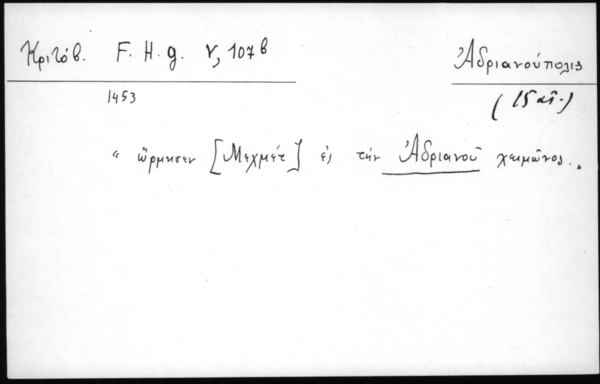 Κριτόβ. F. H. g. V, 107 b
Ἀδριανούπολις
(15 αἰ.)
1453
" ὥρμησεν [Μεχμέτ] ἐς τὴν Ἀδριανοῦ χειμῶνος..